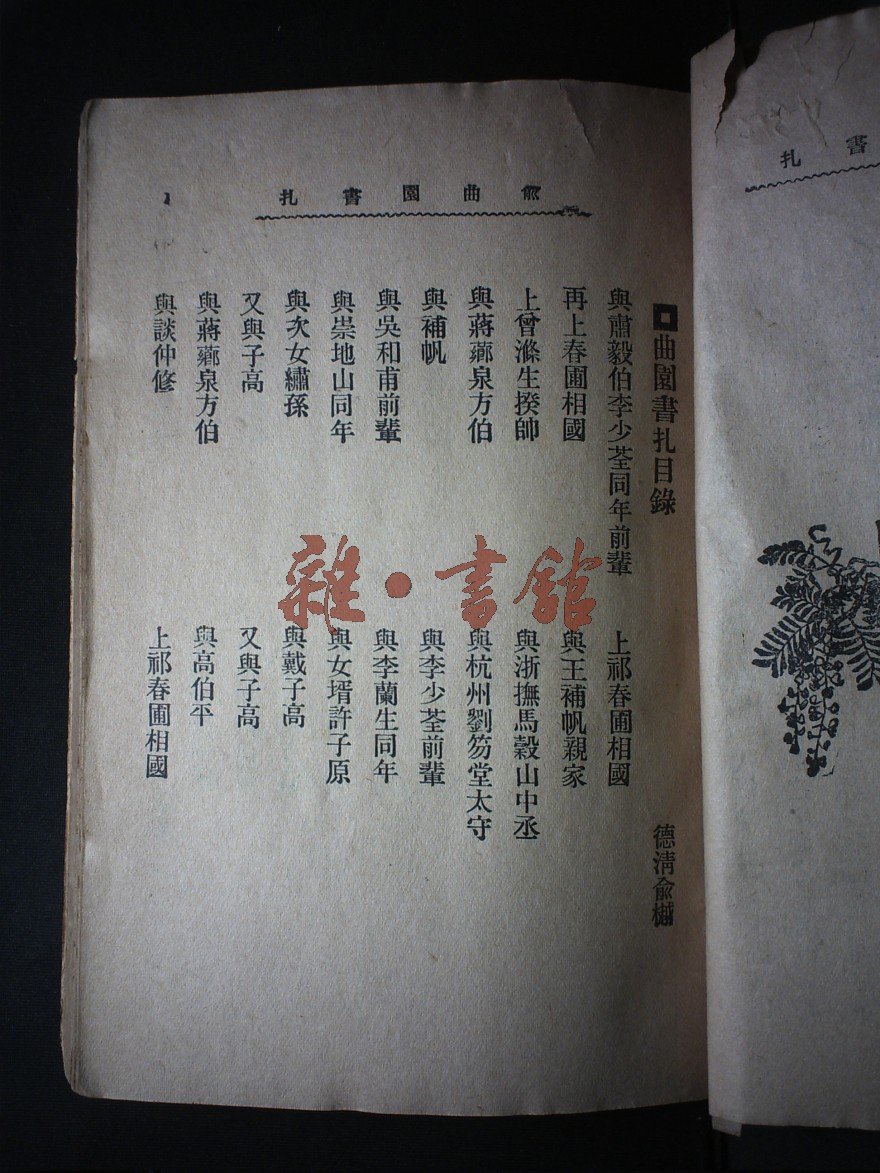 俞曲園書扎
1
曲園書扎目錄
德清俞樾
與肅毅伯李少荃同年前輩
上祁春圃相國
再上春圃相國
與王補帆親家
上曾滌生揆帥
與浙撫馬穀山中丞
與蔣薌泉方伯
與杭州劉笏堂太守
與補帆
與李少荃前輩
與吳和甫前輩
與李蘭生同年
與崇地山同年
與女壻許子原
與次女繡孫
與戴子高
又與子高
又與子高
與蔣薌泉方伯
與高伯平
與談仲修
上祁春圃相國
書扎
雜·書館